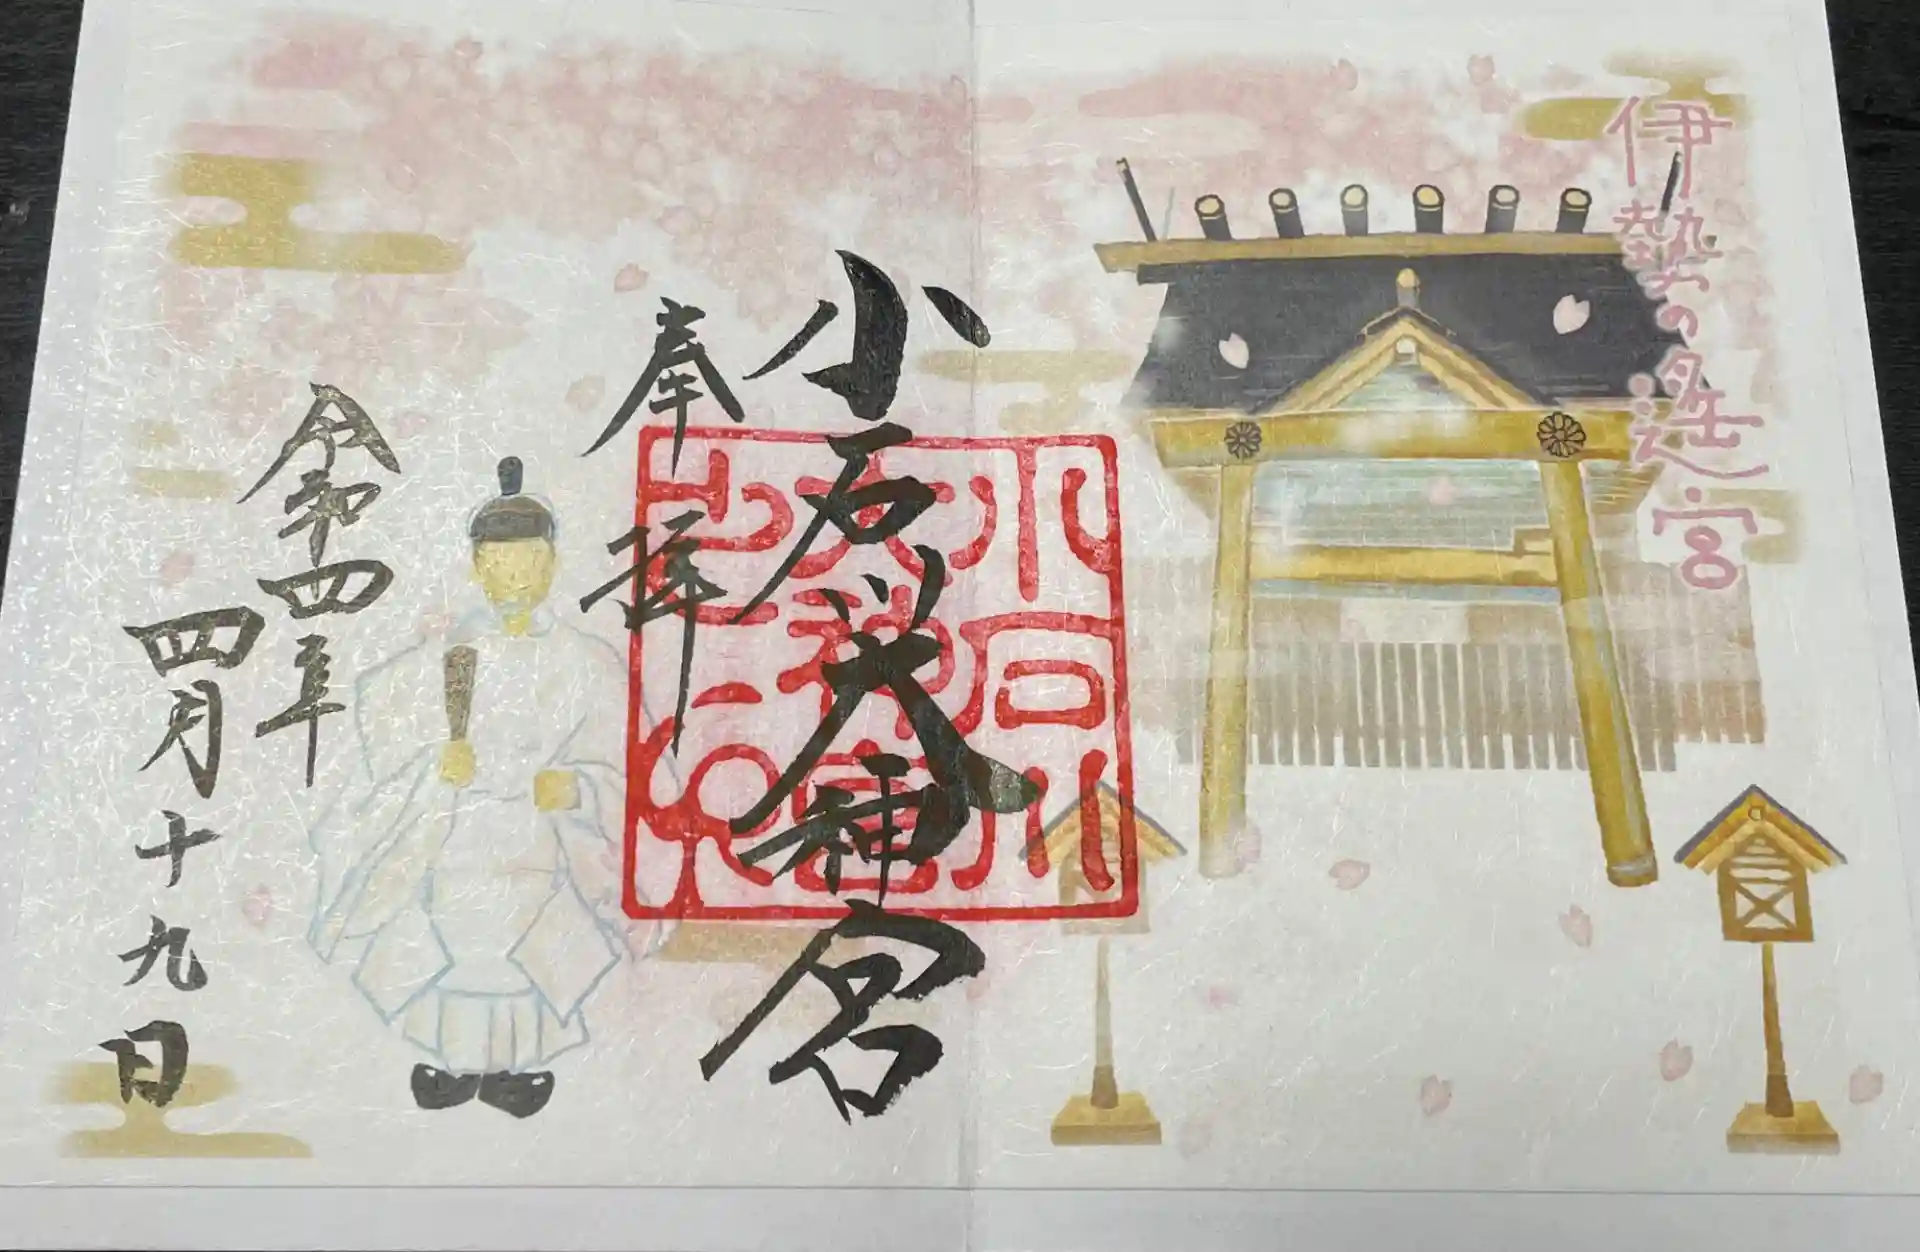 伊勢の遙宮
小石川大神宮
奉拝
令和四年
四月十九日
小石川
大神宮
之印